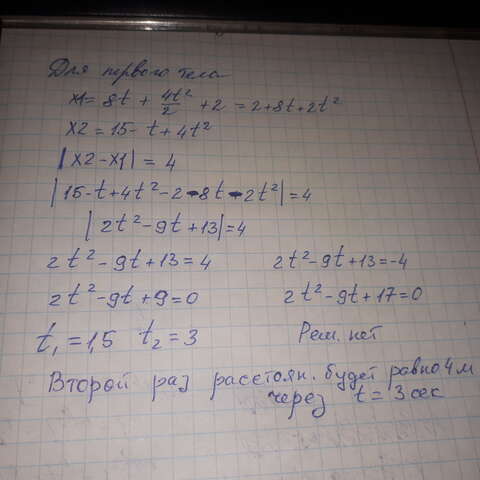 Для первого тела
x1 = 8t + 4t²/2 + 2 = 2+8t+2t²
x2 = 15 - t + 4t²
|x2 - x1| = 4
|15 - t + 4t² - 2 - 8t - 2t²| = 4
|2t² - 9t + 13| = 4
2t² - 9t + 13 = 4 2t² - 9t + 13 = -4
2t² - 9t + 9 = 0 2t² - 9t + 17 = 0
t₁ = 1,5 t₂ = 3 Реш. нет
Второй раз расстоян. будет равно 4 м
через t = 3 сек